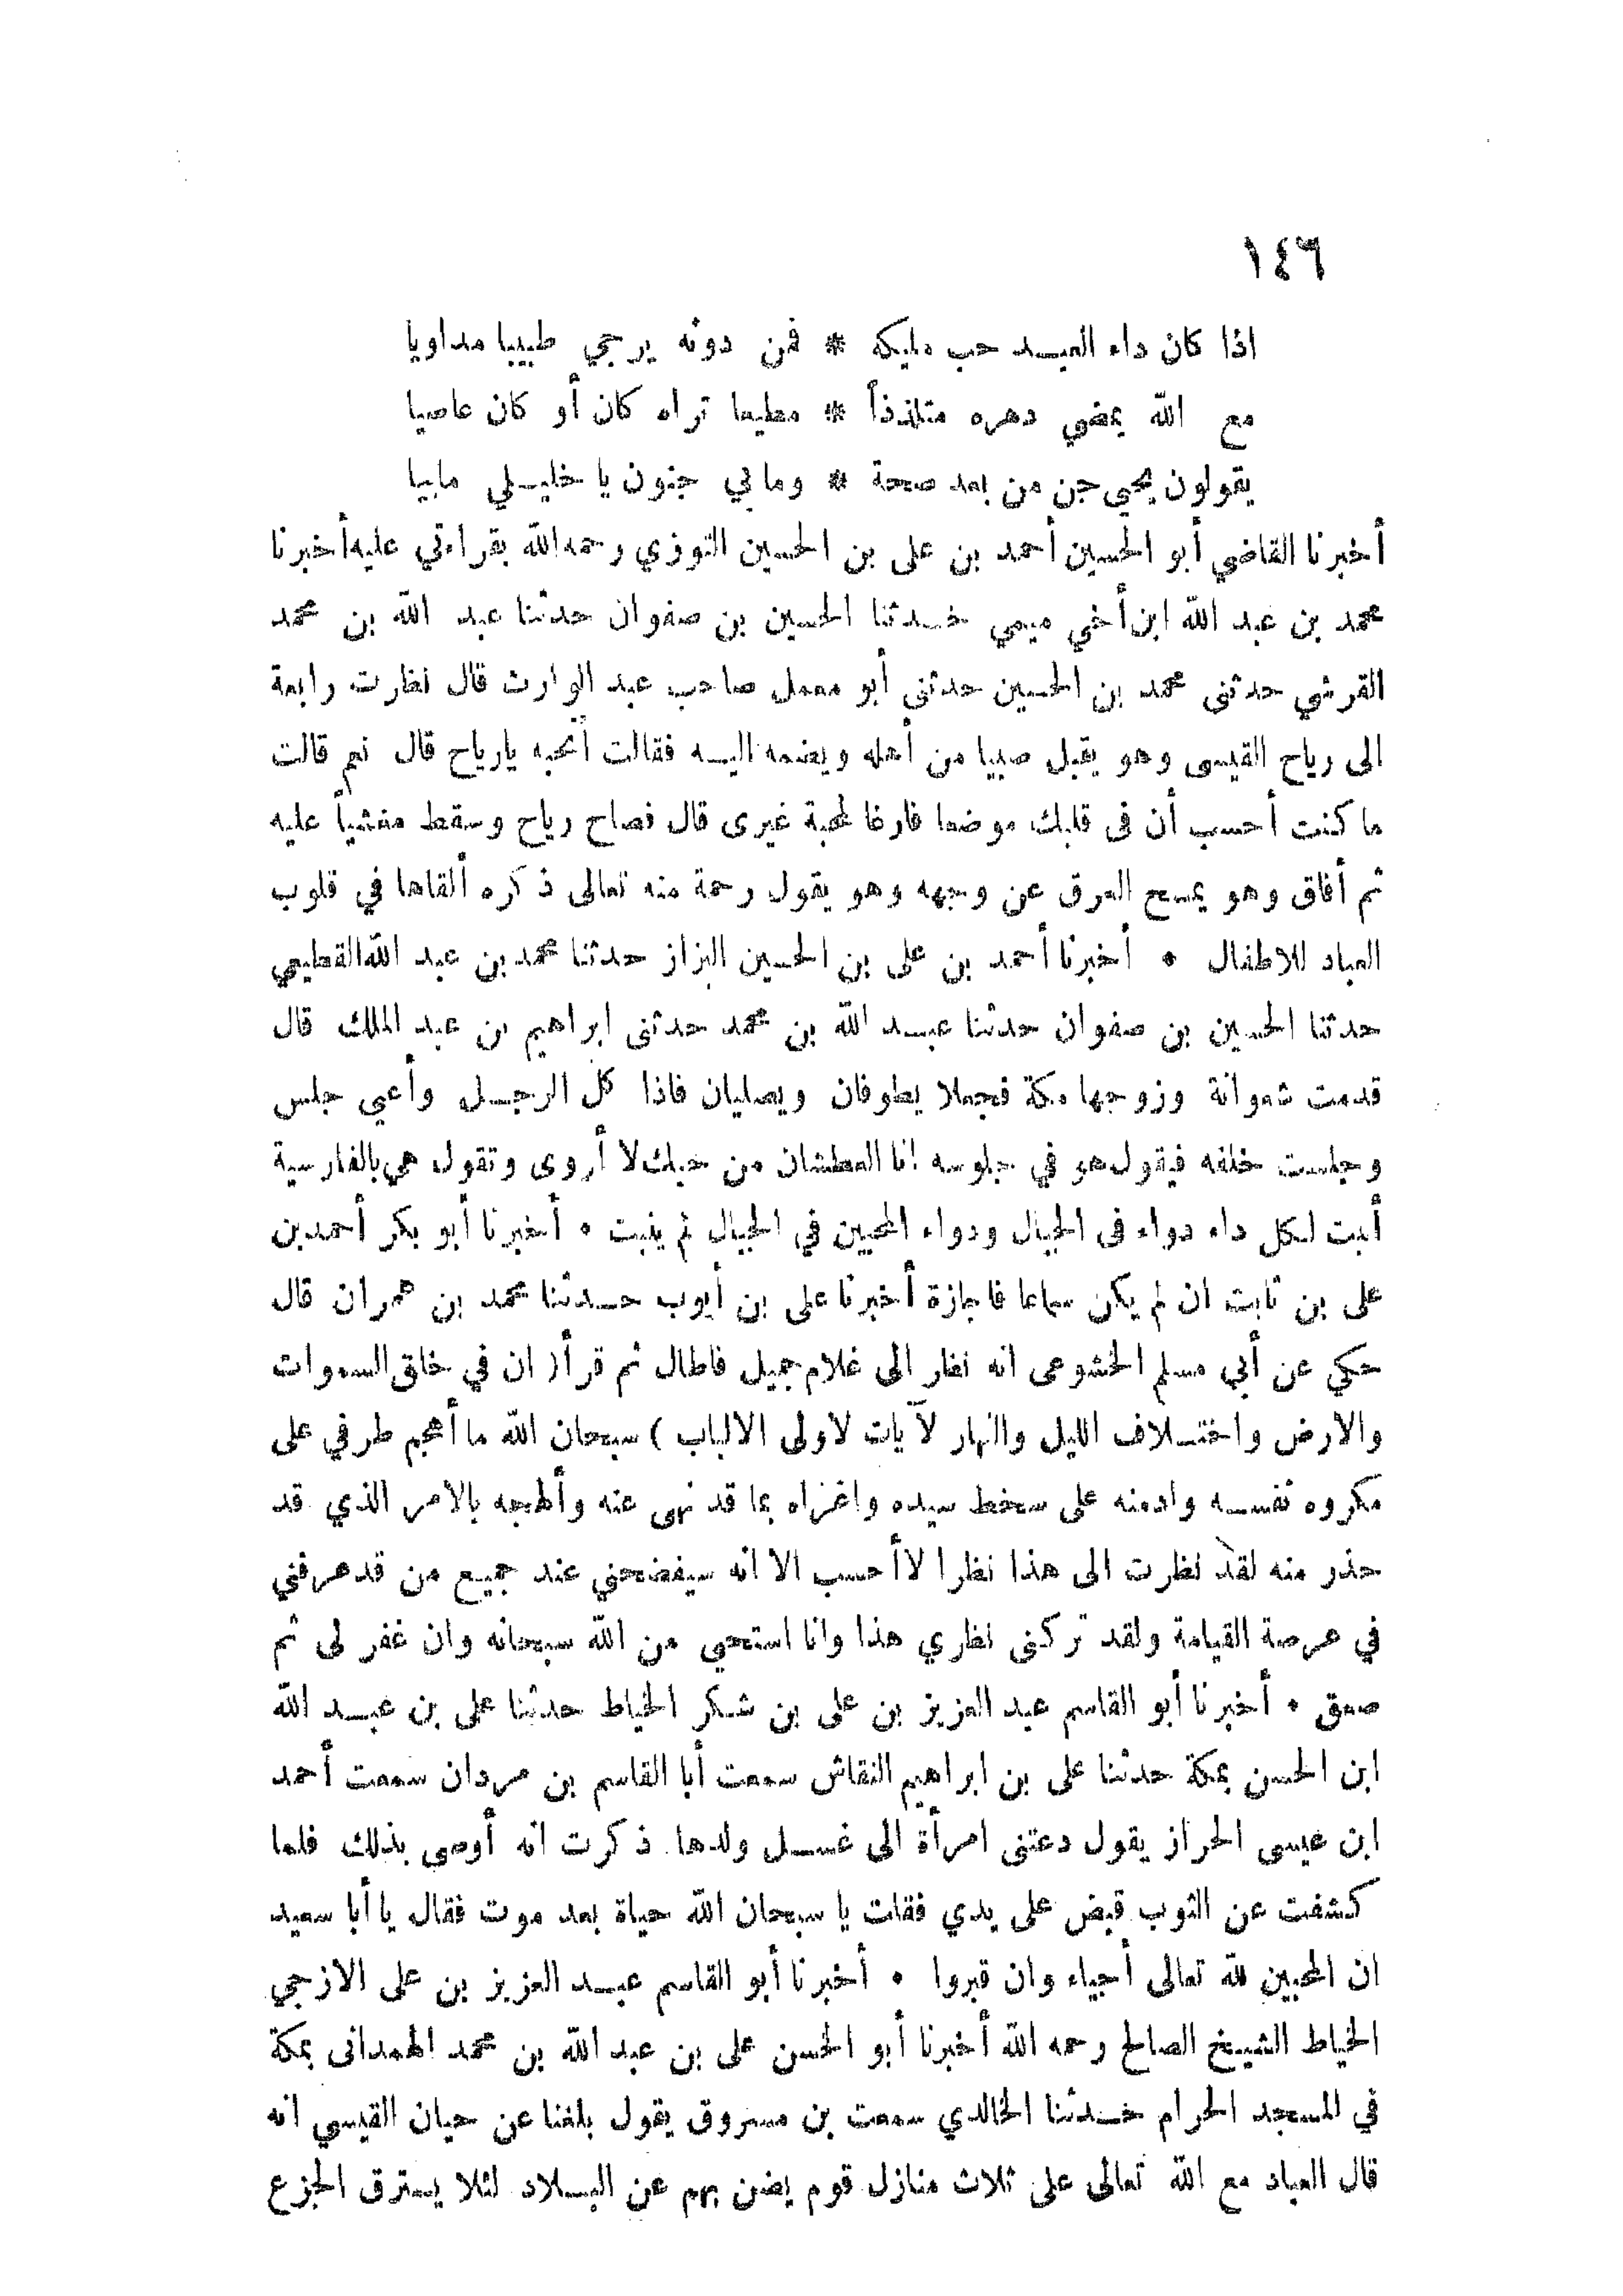 ١٤٦
اذا كان داء العبد حب مليكه * فمن دونه يرجي طبيبا مداويا
مع الله يمضي دهره متلذذاً * مطيعا تراه كان أو كان عاصيا
يقولون يحيى جن من بعد صحة * وما بي جنون يا خليلي ما بيا
أخبرنا القاضي أبو الحسين أحمد بن على بن الحسين التوزي رحمه الله بقراءتي عليه أخبرنا
محمد بن عبد الله ابن أخي ميمي حدثنا الحسين بن صفوان حدثنا عبد الله بن محمد
القرشي حدثنى محمد بن الحسين حدثني أبو معمل صاحب عبد الوارث قال نظرت رابعة
الى رياح القيسى وهو يقبل صبيا من أهله ويضمه اليه فقالت أتحبه يارياح قال نعم قالت
ما كنت أحسب أن فى قلبك موضعا فارغا لمحبة غيرى قال فصاح رياح وسقط مغشياً عليه
ثم أفاق وهو يمسح العرق عن وجهه وهو يقول رحمة منه تعالى ذكره ألقاها في قلوب
العباد للاطفال • أخبرنا أحمد بن على بن الحسين البزاز حدثنا محمد بن عبد الله القطيعي
حدثنا الحسين بن صفوان حدثنا عبد الله بن محمد حدثنى ابراهيم بن عبد الملك قال
قدمت شعوانة وزوجها مكة فجعلا يطوفان ويصليان فاذا كل الرجل وأعي جلس
وجلست خلفه فيقول هو في جلوسه انا العطشان من حبك لا أروى وتقول هي بالفارسية
أنبت لكل داء دواء فى الجبال ودواء المحبين في الجبال لم ينبت • أخبرنا أبو بكر أحمد بن
على بن ثابت ان لم يكن سماعا فاجازة أخبرنا على بن أيوب حدثنا محمد بن عمران قال
حكي عن أبي مسلم الخشوعى انه نظر الى غلام جميل فاطال ثم قرأ ( ان في خلق السموات
والارض واختلاف الليل والنهار لآيات لاولى الالباب ) سبحان الله ما أهجم طرفي على
مكروه نفسه وادمنه على سخط سيده واغزاه بما قد نهى عنه وألهجه بالامر الذي قد
حذر منه لقد نظرت الى هذا نظرا لا أحسب الا انه سيفضحني عند جميع من قد عرفني
في عرصة القيامة ولقد تركنى نظري هذا وانا استحي من الله سبحانه وان غفر لى ثم
صعق • أخبرنا أبو القاسم عبد العزيز بن على بن شكر الخياط حدثنا على بن عبد الله
ابن الحسن بمكة حدثنا على بن ابراهيم النقاش سمعت أبا القاسم بن مردان سمعت أحمد
ابن عيسى الحراز يقول دعتنى امرأة الى غسل ولدها ذكرت انه أوصى بذلك فلما
كشفت عن الثوب قبض على يدي فقلت يا سبحان الله حياة بعد موت فقال يا أبا سعيد
ان المحبين لله تعالى أحياء وان قبروا • أخبرنا أبو القاسم عبد العزيز بن على الازجي
الخياط الشيخ الصالح رحمه الله أخبرنا أبو الحسن على بن عبد الله بن محمد الهمدانى بمكة
في المسجد الحرام حدثنا الخالدي سمعت بن مسروق يقول بلغنا عن حيان القيسي انه
قال العباد مع الله تعالى على ثلاث منازل قوم يضن بهم عن البلاد لئلا يسترق الجزع